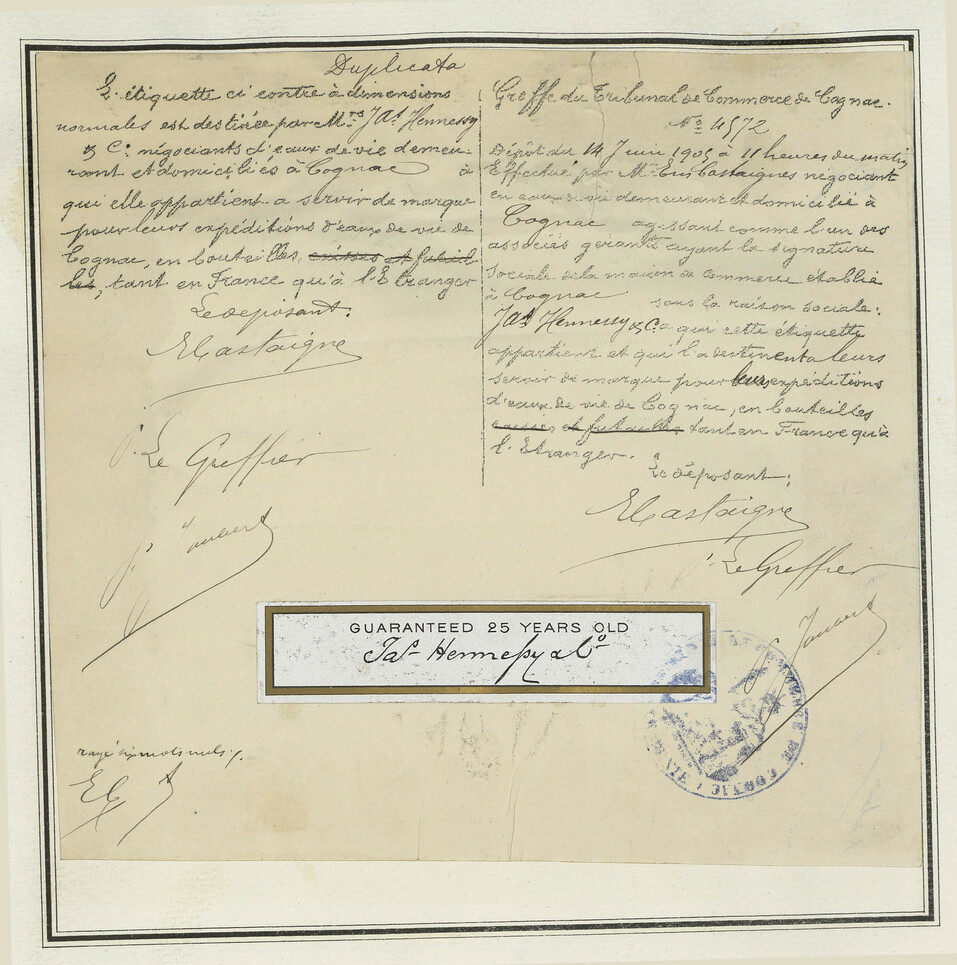 Duplicata
L'étiquette ci contre à dimensions
normales est destinée par M.rs JAs Hennessy
& Co. négociants d'eaux de vie demeu-
rant et domiciliés à Cognac à
qui elle appartient a servir de marque
pour leurs expéditions d'eaux de vie de
Cognac, en bouteilles, caisses et futail
les, tant en France qu'à l'Etranger
Le déposant:
ECastaigne
p. Le Greffier
Greffe du Tribunal de Commerce de Cognac.
No 4572
Dépôt du 14 Juin 1905 à 11 heures du matin
Effectué par Mr Castaignes négociant
en eaux de vie demeurant et domicilié à
Cognac agissant comme l'un des
associés gérants ayant la signature
sociale de la maison de commerce établie
à Cognac sous la raison sociale:
JAs Hennessy & Co a qui cette étiquette
appartient et qui l'a destinent a leurs
servir de marque pour leurs expéditions
d'eaux de vie de Cognac, en bouteilles
caisses et futailles tant en France qu'à
l'Etranger.
Le déposant:
ECastaigne
p. Le Greffier
GUARANTEED 25 YEARS OLD
Jas Hennessy & Co
rayé six mots nuls